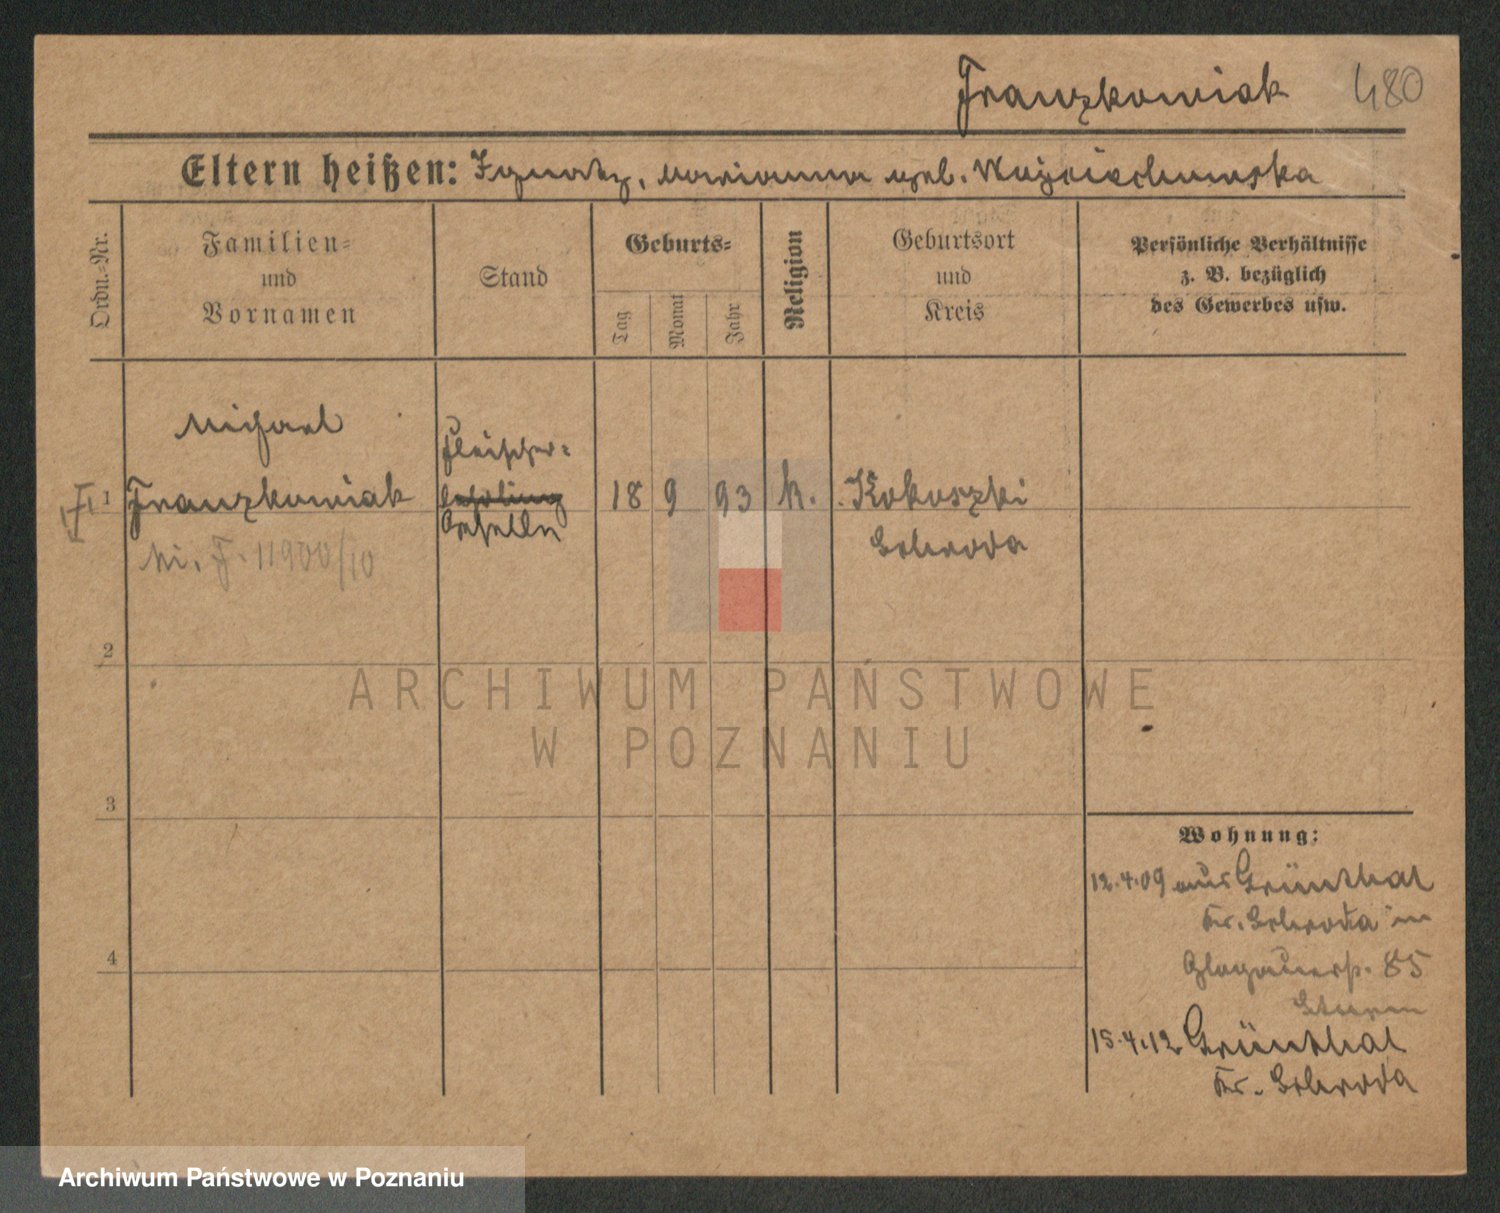 Franzkowiak 480
Eltern heißen: Ignatz, Marianna geb. Wojciechowska
Ordn.-Nr.
Familien-
und
Vornamen
Stand
Geburts-
Tag
Monat
Jahr
Religion
Geburtsort
und
Kreis
Persönliche Verhältnisse
z. B. bezüglich
des Gewerbes usw.
Michael
Fleischer-
1 Franzkowiak Lehrling 18 9 93 k. Kokoszki
Geselle
Schroda
F. 11900/10
2
ARCHIWUM PAŃSTWOWE
W POZNANIU
3
Wohnung:
12.4.09 aus Grünthal
Kr. Schroda in
Glogauerstr. 85
15.4.12 Grünthal
Kr. Schroda
4
Archiwum Państwowe w Poznaniu